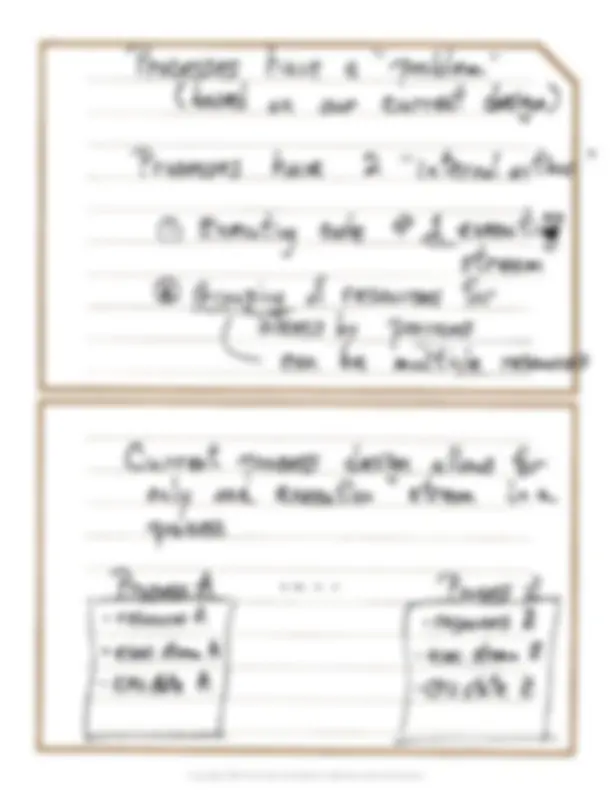 Processes have a "problem"
(based on our current design)
Processes have 2 "
① Executing code 1 executing
stream
② Grouping of resources for
access by process
can be multiple resources
Current process design allows for
only one execution stream in a
process
Process A .... Process Z
- resource A - resources Z
- exec stream A - exec stream Z
- A - Z